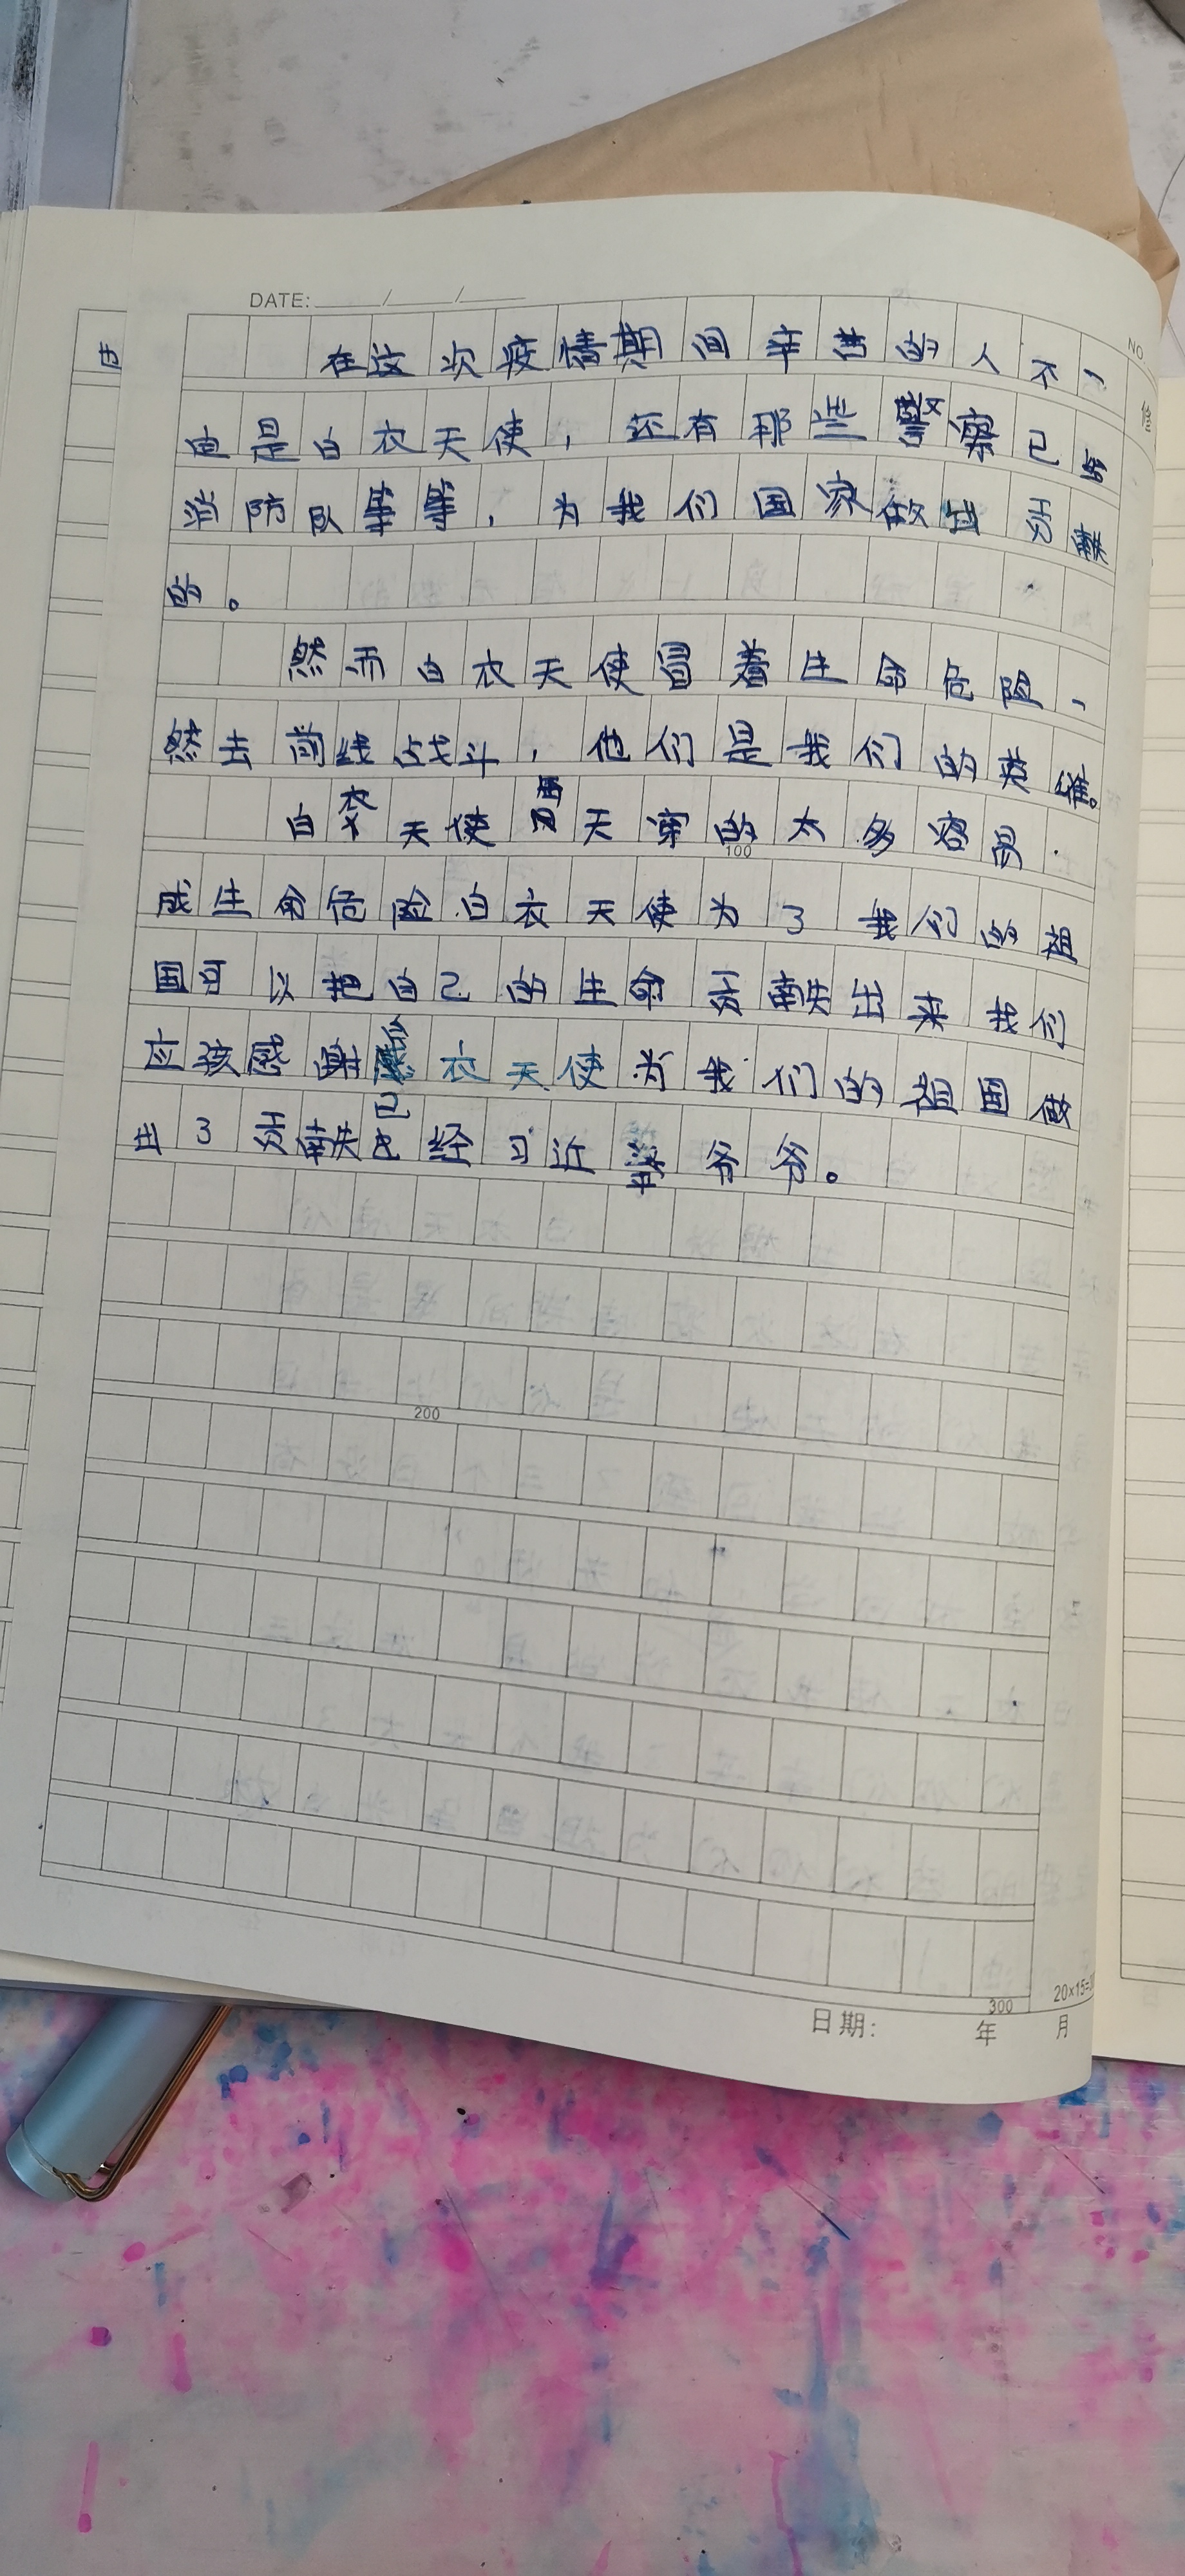 DATE: / /
NO.
在这次疫情期间辛苦的人不
是白衣天使，还有那些警察已
消防队等等，为我们国家做出贡献
的。
然而白衣天使冒着生命危险
然去前线战斗，他们是我们的英雄。
白衣天使夏天穿的太多容易
100
成生命危险白衣天使为了我们的祖
国可以把自己的生命贡献出来我们
应孩感谢白衣天使为我们的祖国做
出了贡献已经习近平爷爷。
200
300
20×15=
日期: 年 月